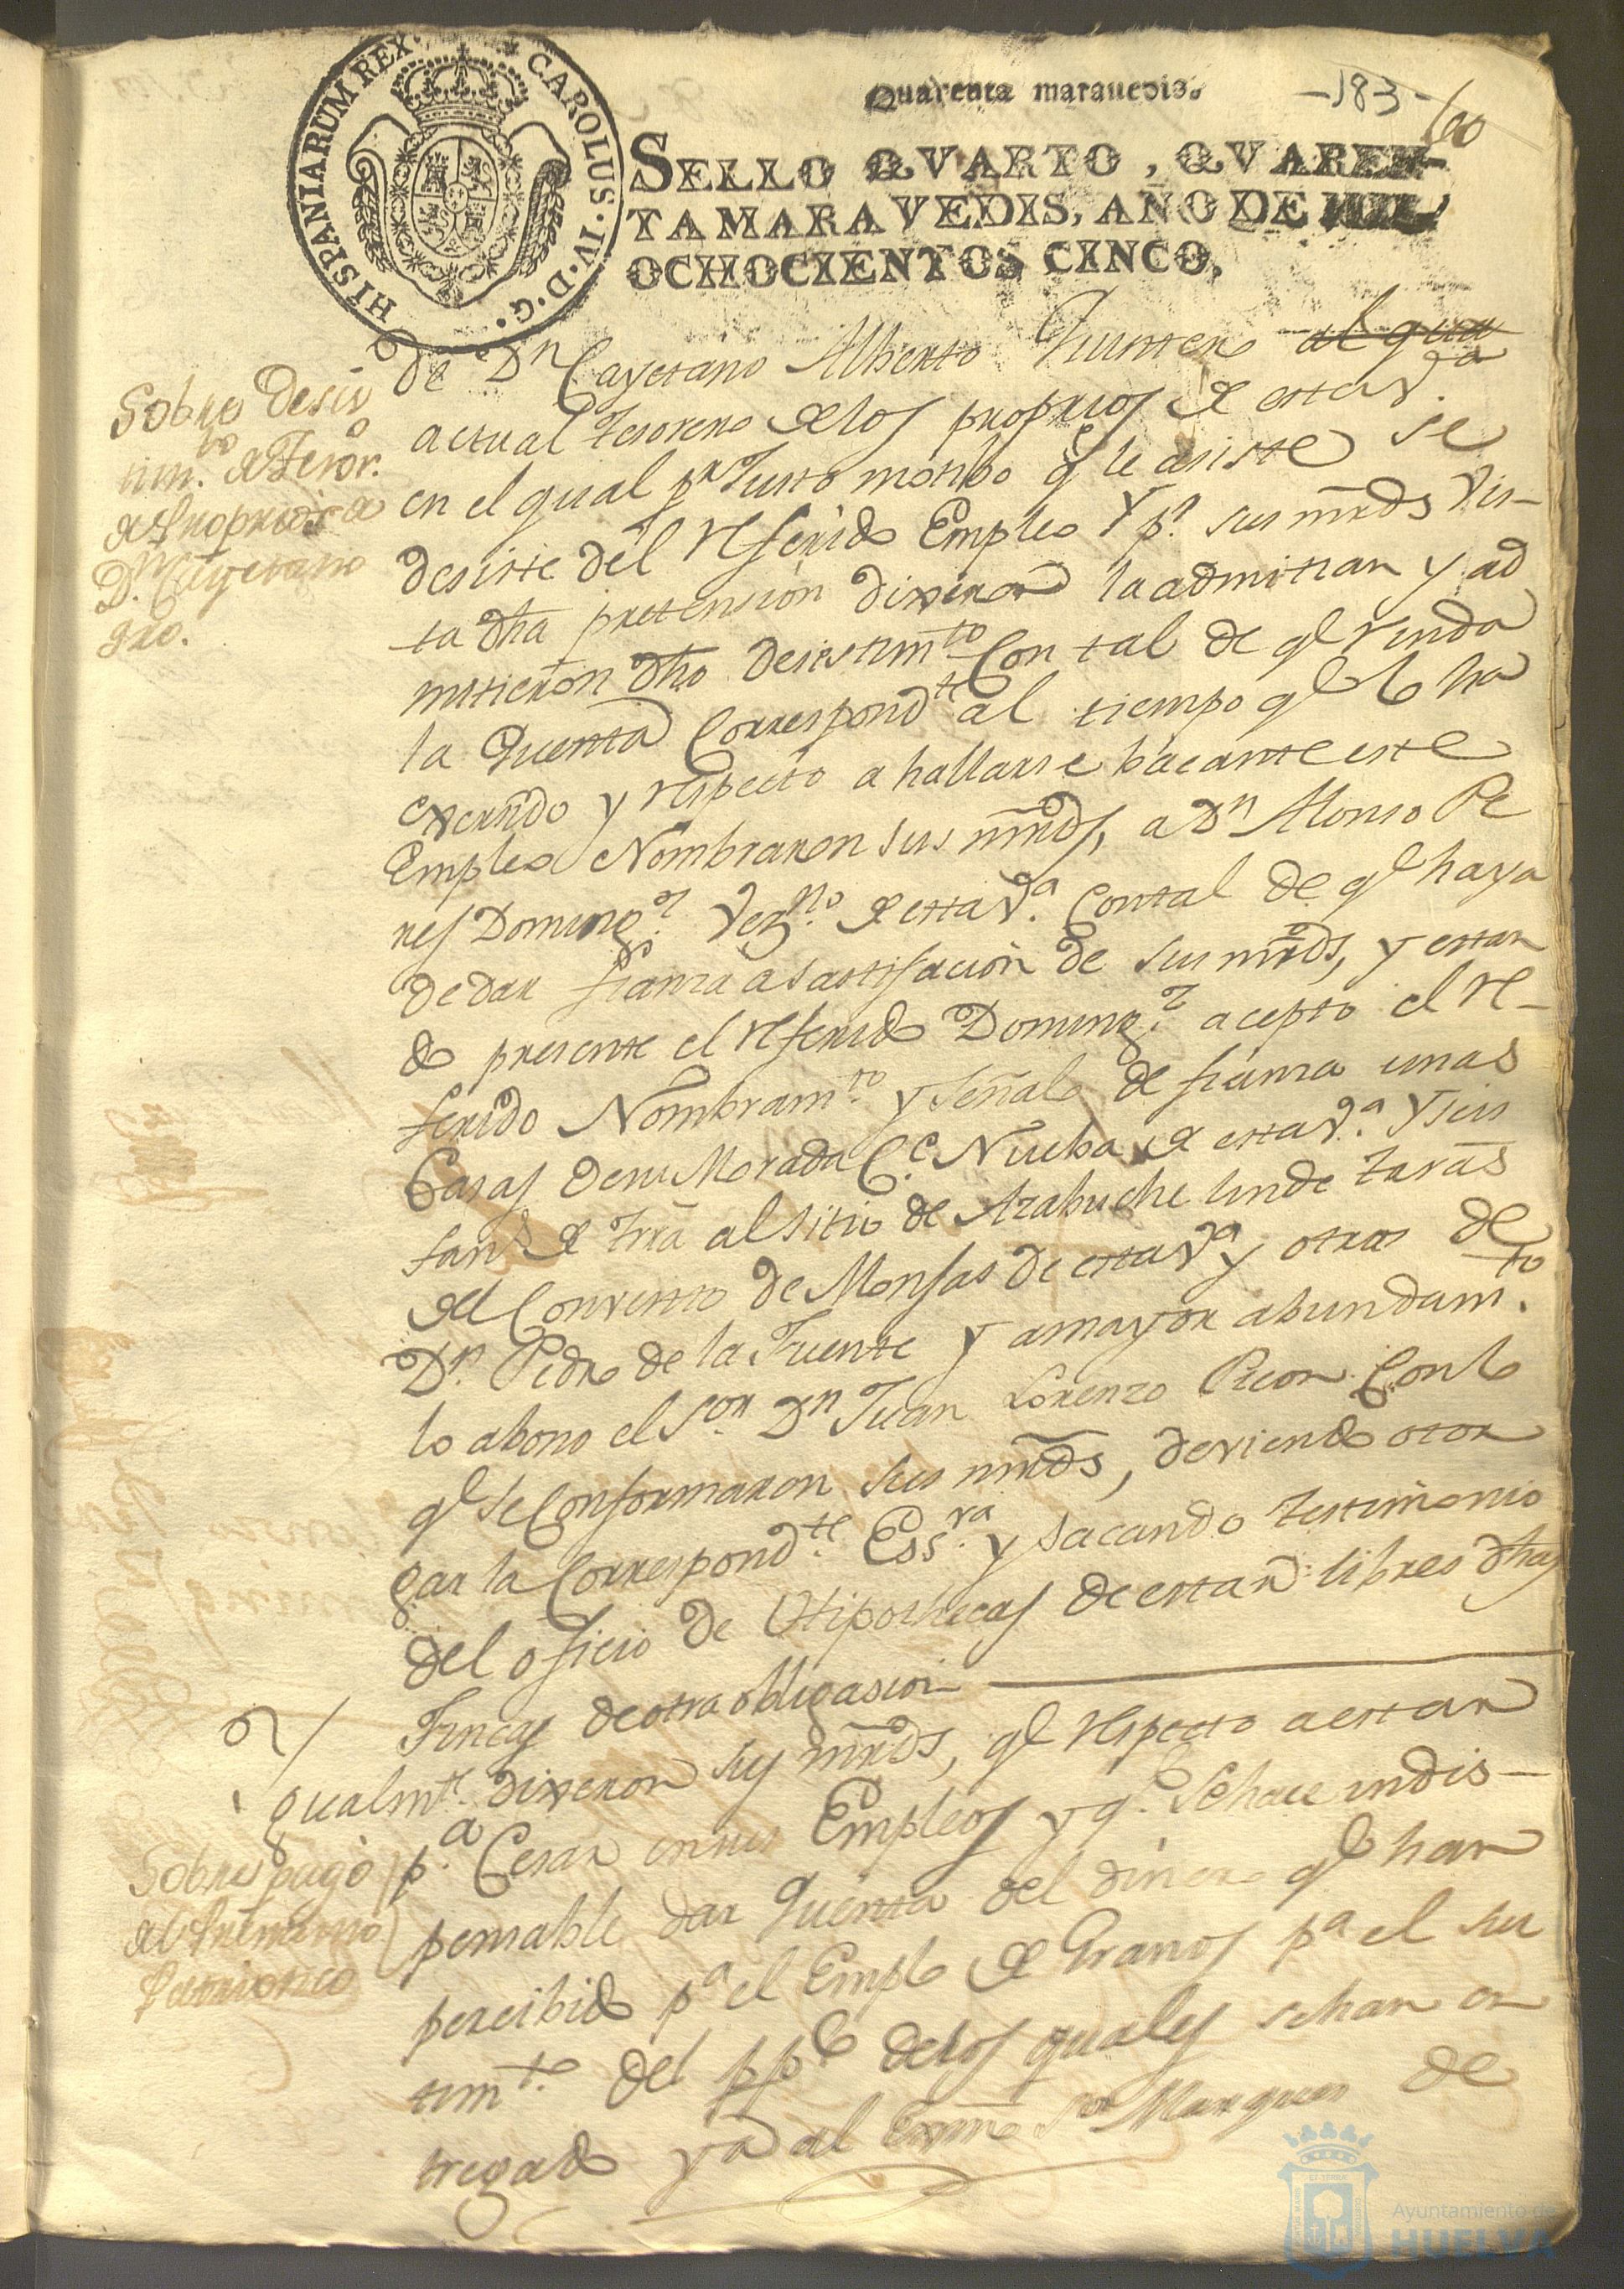 HISPANIARUM REX. CAROLUS. IV. D. G.
Quarenta marauedis.
-183-
60
SELLO QVARTO, QVAREN-
TA MARAVEDIS, AÑO DE MIL
OCHOCIENTOS CINCO.
Sobre desis
tim.to de Tesor.o
de Propios a
D.n Cayetano
de Dn Cayetano Alberto Quintero al qua
actual Tesorero de los propios de esta V.a
en el qual pr Justo motibo qe le asiste se
desiste del referido Empleo Y pr. sus mrds vis-
ta dha pretension dixeron la admitian y ad
mitieron dho desistimto Con tal de qe rinda
la Quenta Correspondte al tiempo qe lo ha
exercido y respecto a hallarse bacante este
Empleo Nombraron sus mrds, a Dn Alonso Pe
res Doming.z Vez.no de esta V.a Con tal de qe haya
de dar fianza a sastisfacion de sus mrds, y estan
do presente el referido Doming.z acepto el re-
ferido Nombram.to y Señalo de fianza unas
Casas de su Morada C.e Nueba de esta V.a Y seis
fans de trra al sitio de Azabuche linde tierras
del Convento de Monjas de esta Va y otras de
D.n Pedro de la Fuente y amayor abundam.to
lo abono el S.or Dn Juan Lorenzo Picon Con lo
qe se Conformaron sus mrds, deviendo otor
gar la Correspond.te Ess.ra y sacando testimonio
del oficio de Hipothecas de estar libres dhas
Fincas de otra obligasion
Y
gualmte. dixeron sus mrds, qe respecto a estar
Sobre pago
del Prestamo
Patriotico
p.a Cesar en sus Empleos y q.e se hace indis-
pensable dar Quenta del dinero qe han
percibido pa el Empleo de Granos pa el sur
timto. del ppco de los quales se han en
tregado ya al Exmo Sor Marques de
Ayuntamiento de
HUELVA